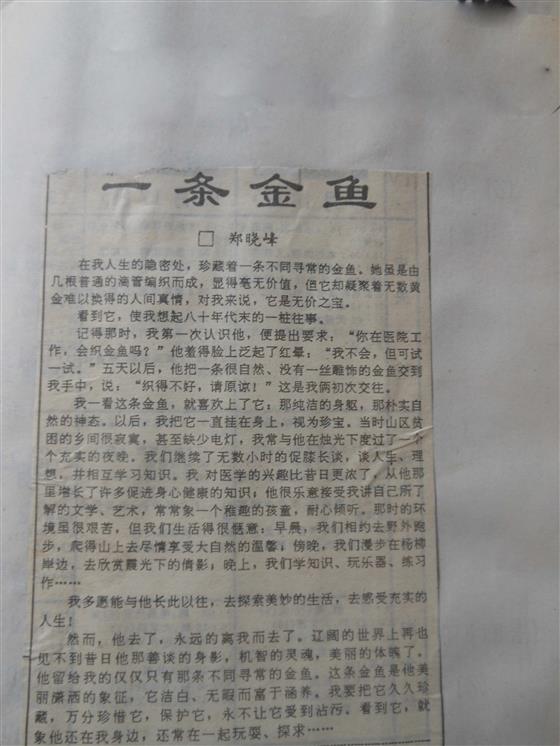 一条金鱼
□ 郑晓峰
在我人生的隐密处，珍藏着一条不同寻常的金鱼。她虽是由
几根普通的滴管编织而成，显得毫无价值，但它却凝聚着无数黄
金难以换得的人间真情，对我来说，它是无价之宝。
看到它，使我想起八十年代末的一桩往事。
记得那时，我第一次认识他，便提出要求：“你在医院工
作，会织金鱼吗？”他羞得脸上泛起了红晕：“我不会，但可试
一试。”五天以后，他把一条很自然、没有一丝雕饰的金鱼交到
我手中，说：“织得不好，请原谅！”这是我俩初次交往。
我一看这条金鱼，就喜欢上了它：那纯洁的身躯，那朴实自
然的神态。以后，我把它一直挂在身上，视为珍宝。当时山区贫
困的乡间很寂寞，甚至缺少电灯，我常与他在烛光下度过了一个
个充实的夜晚。我们继续了无数小时的促膝长谈，谈人生、理
想，并相互学习知识。我 对医学的兴趣比昔日更浓了，从他那
里增长了许多促进身心健康的知识；他很乐意接受我讲自己所了
解的文学、艺术，常常象一个稚趣的孩童，耐心倾听。那时的环
境虽很艰苦，但我们生活得很惬意：早晨，我们相约去野外跑
步，爬得山上去尽情享受大自然的温馨；傍晚，我们漫步在杨柳
岸边，去欣赏霞光下的倩影；晚上，我们学知识、玩乐器、练习
作……
我多愿能与他长此以往，去探索美妙的生活，去感受充实的
人生！
然而，他去了，永远的离我而去了。辽阔的世界上再也
见不到昔日他那善谈的身影，机智的灵魂，美丽的体魄了。
他留给我的仅仅只有那条不同寻常的金鱼。这条金鱼是他美
丽潇洒的象征，它洁白、无暇而富于涵养。我要把它久久珍
藏，万分珍惜它，保护它，永不让它受到沾污。看到它，就
象他还在我身边，还常在一起玩耍、探求……